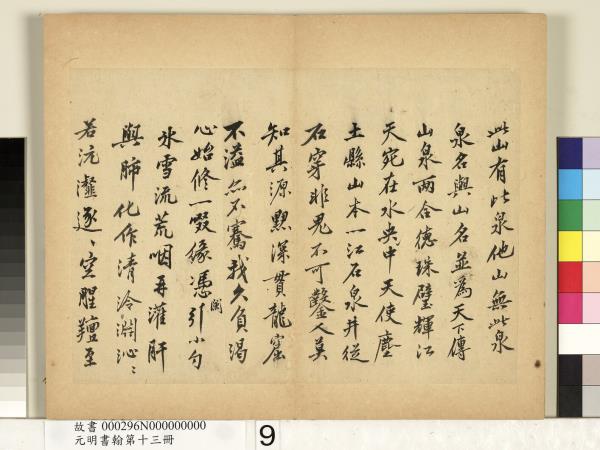 此山有此泉他山無此泉
泉名與山名並為天下傳
山泉兩合德珠璧輝江
天宛在水央中天使塵
土懸山本一江石泉井從
石穿非鬼不可鑿人莫
知其源黙深貫龍窟
不溢亦不騫我久負渴
心始修一啜緣憑闌引小勺
冰雪流荒咽再灌肝
與肺化作清泠淵沁〻
若沆瀣逐〻空腥羶至
故書 000296N000000000
元明書翰第十三冊
9